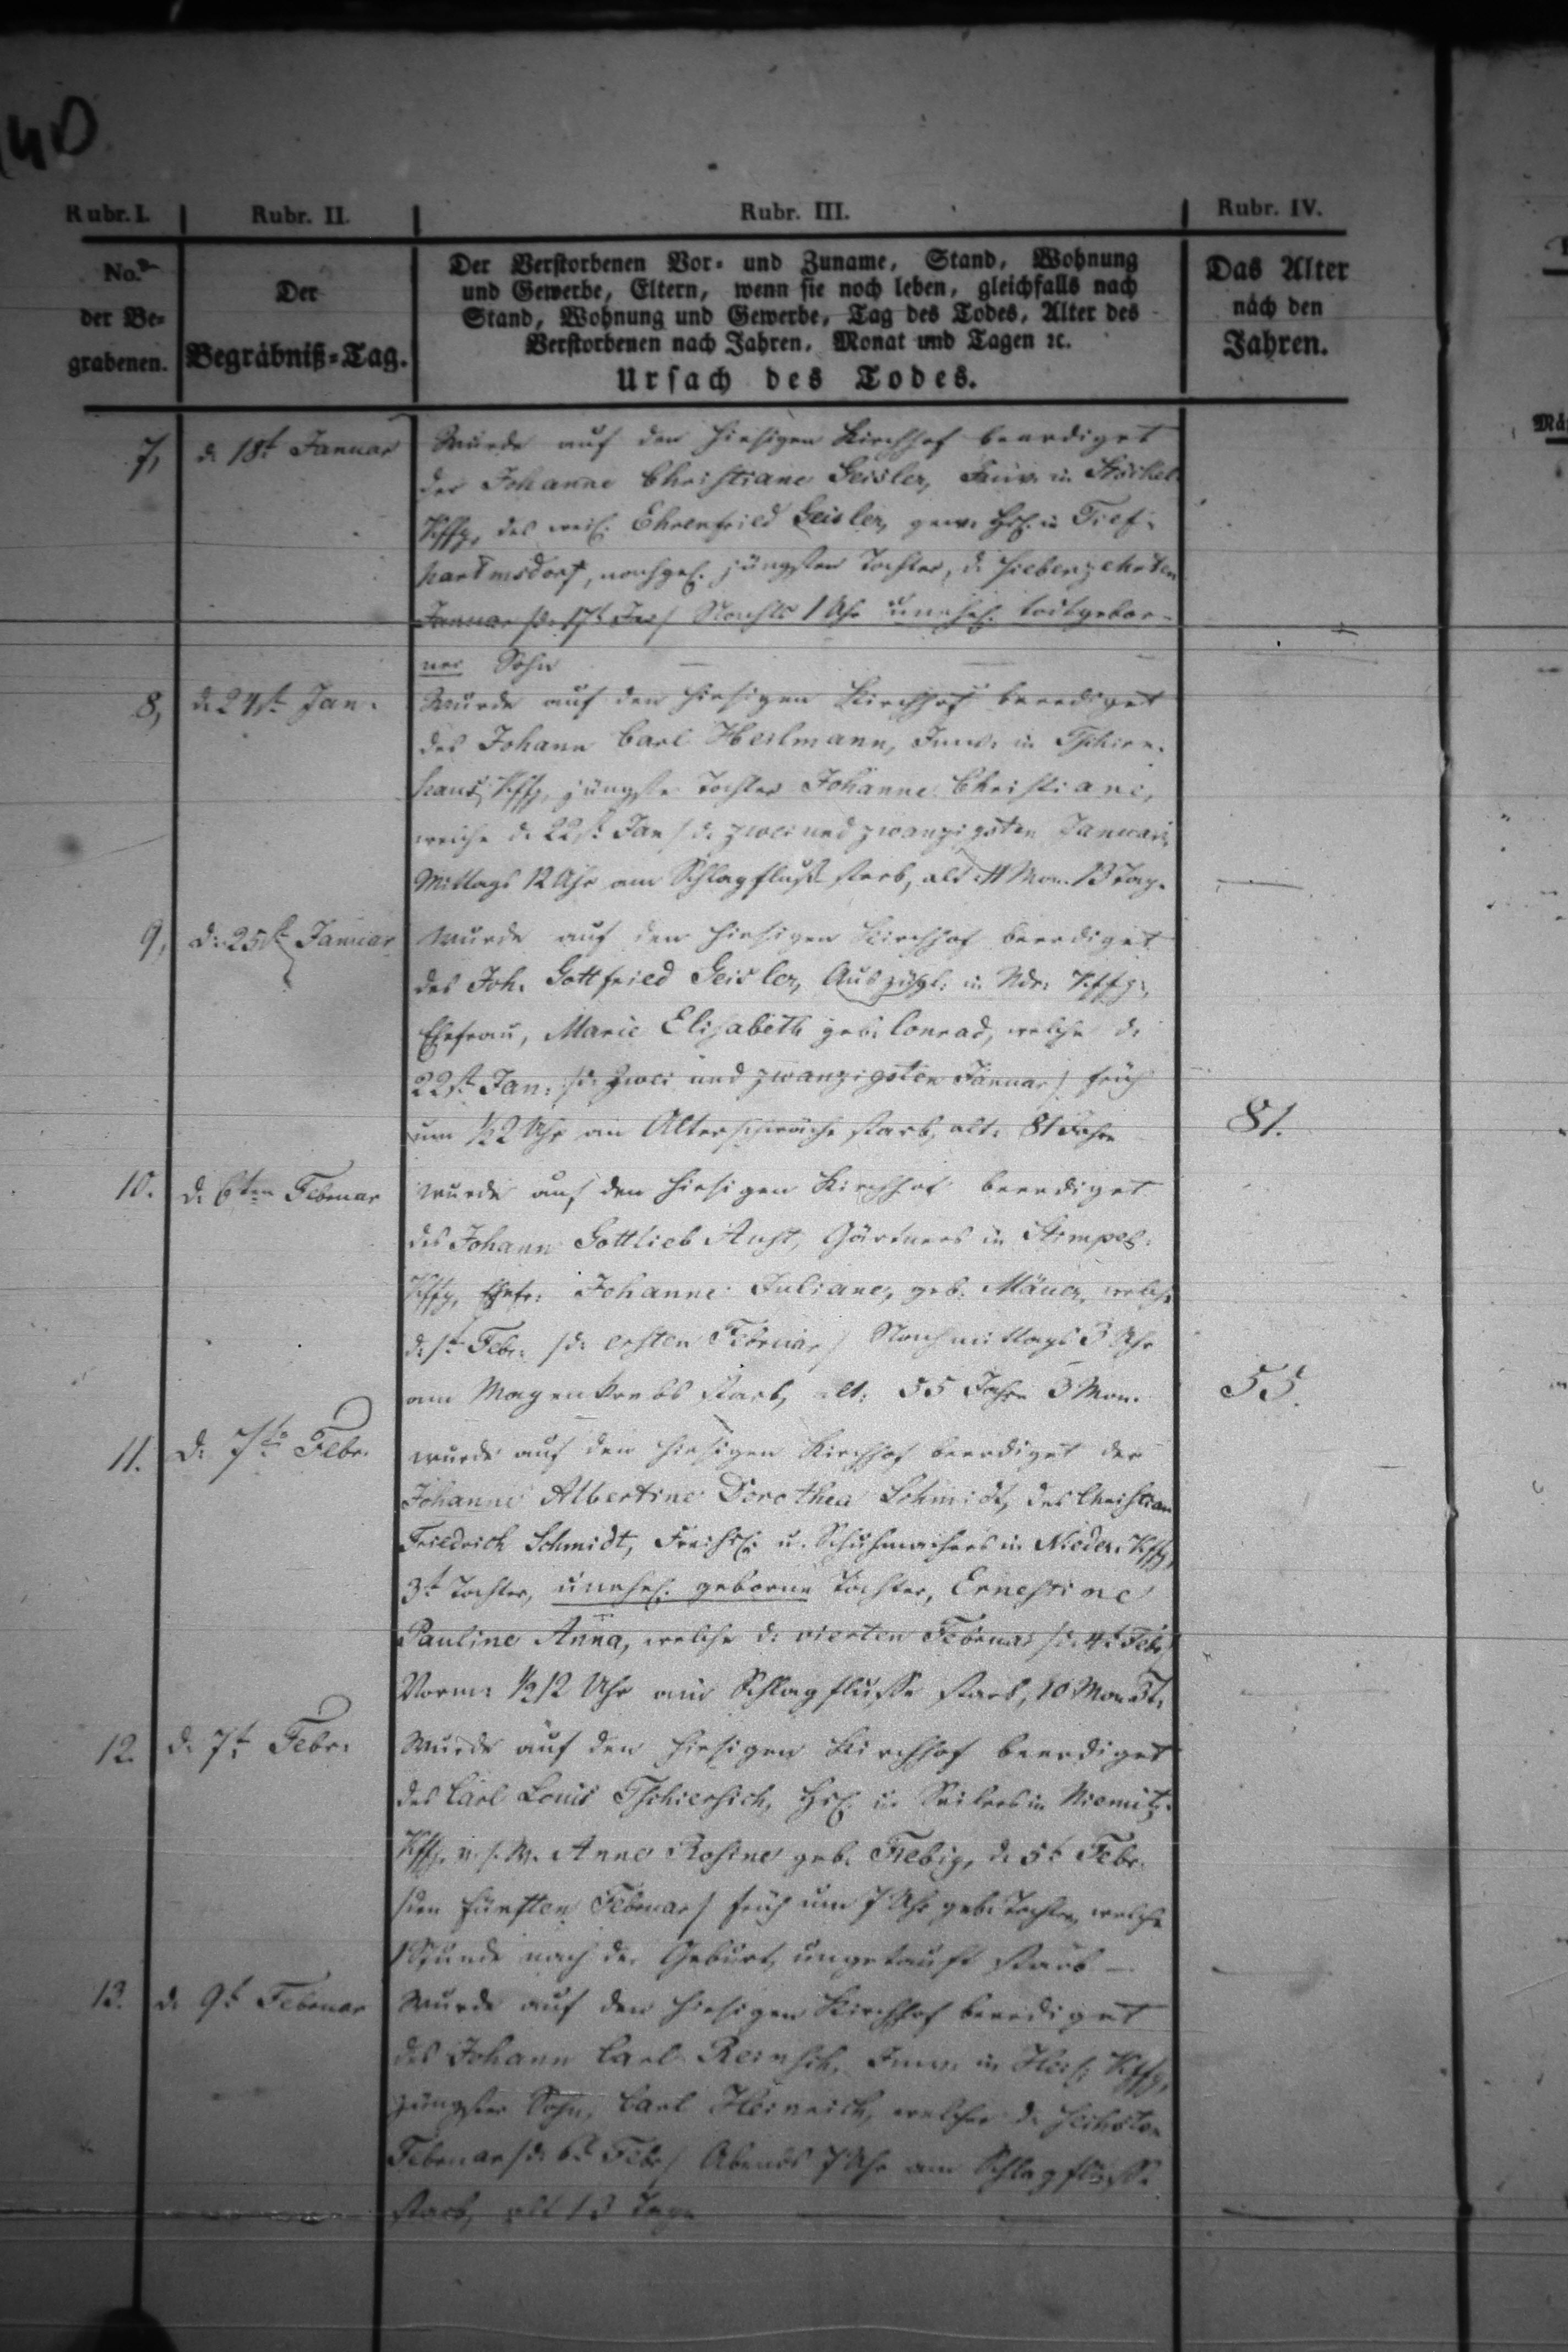 40
Rubr. I. Rubr. II. Rubr. III. Rubr. IV.
No.
der Be-
grabenen.
Der
Begräbniß-Tag.
Der Verstorbenen Vor- und Zuname, Stand, Wohnung
und Gewerbe, Eltern, wenn sie noch leben, gleichfalls nach
Stand, Wohnung und Gewerbe, Tag des Todes, Alter des
Verstorbenen nach Jahren, Monat und Tagen ꝛc.
Ursach des Todes.
Das Alter
nach den
Jahren.
7, d. 18t Januar Wurde auf den hiesigen Kirchhof beerdiget
der Johanne Christiane Geisler, Inw. in Stöckel
Kffg, des weil. Ehrenfried Geisler, gew. Hsl. in Tief-
hartmsdorf, nachgel. jüngsten Tochter, d. siebenzehnten
Januar /d. 17t Jan/ Nachts 1 Uhr unehel. todtgebor-
ner Sohn
8, d. 24st. Jan. Wurde auf den hiesigen Kirchhof beerdiget
des Johann Carl Heilmann, Inw. in Tschirn-
haus Kffg, jüngste Tochter Johanne Christiane,
welche d. 22st. Jan /d. zwei und zwanzigsten Januar/
Mittags 12 Uhr am Schlagfluß starb, alt 4 Mon. 13 Tag.
9, d. 25st. Januar Wurde auf den hiesigen Kirchhof beerdiget
des Joh. Gottfried Geisler, Auszügl. in Ndr. Kffg,
Ehefrau, Marie Elisabeth geb. Conrad, welche d.
22st. Jan. /d. zwei und zwanzigsten Januar/ früh
um ½2 Uhr an Alterschwäche starb, alt. 81 Jahre
81.
10. d. 6ten Februar wurde auf den hiesigen Kirchhof beerdiget
des Johann Gottlieb Anst, Gärtners in Stimpel-
Kffg, Ehefr. Johanne Juliane, geb. welche
d. 1st Febr. /d. ersten Februar/ Nachmittags 3 Uhr
am Magenkrebs starb, alt. 55 Jahre 3 Mon.
55.
11. d. 7te Febr. wurde auf den hiesigen Kirchhof beerdiget der
Johanne Albertine Dorothea Schmidt, des Christian
Friedrich Schmidt, Freihsl. u. Schuhmachers in Nieder-Kffg,
3t Tochter, unehel. geborne Tochter, Ernestine
Pauline Anna, welche d. vierten Februar /d. 4t Febr/
Vorm. ½12 Uhr am Schlagflusse starb, 10 Mon.
12. d. 7t Febr. Wurde auf den hiesigen Kirchhof beerdiget
des Carl Louis Tschiersich, Hsl. u. Seilers in Niemitz-
Kffg. u. s. W. Anne Rosine geb. Fiebig, d. 5t Febr.
/den fünften Februar/ früh um 7 Uhr geb. Tochter, welche
1 Stunde nach der Geburt ungetauft starb –
13. d. 9t Februar Wurde auf den hiesigen Kirchhof beerdiget
des Johann Carl Reinsch, Inw. in Kffg,
jüngster Sohn, Carl Heinrich, welcher d. sechsten
Februar /d. 6t Febr/ Abends 7 Uhr am Schlagflusse
starb, alt 13 Tage